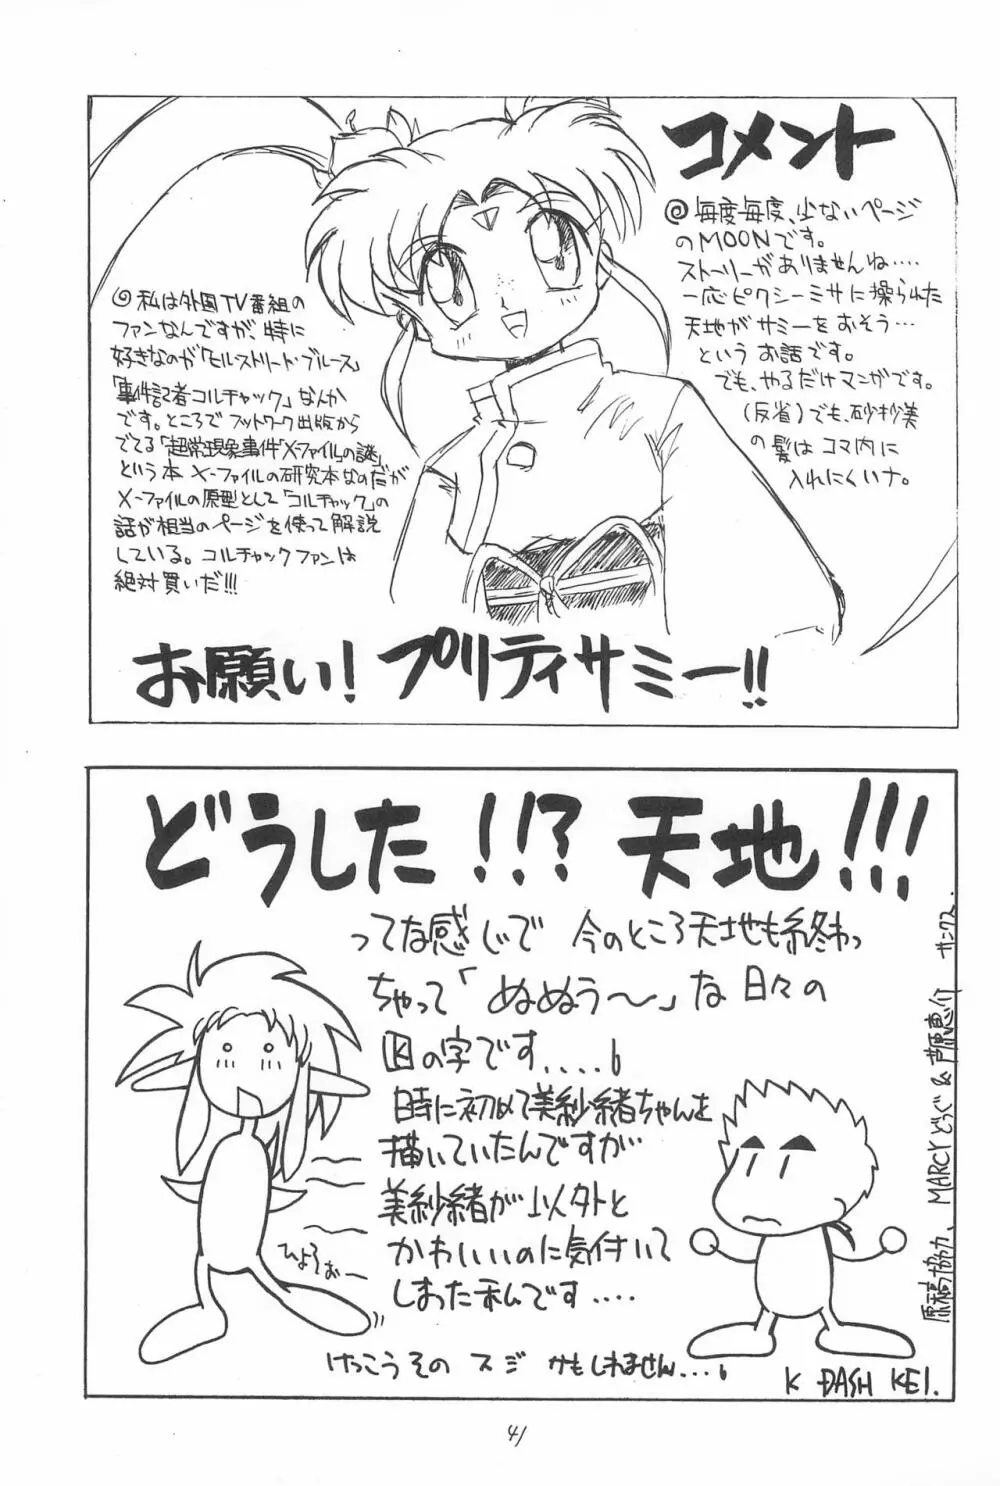 コメント
◎毎度毎度、少ないページ
のMOONです。
ストーリーがありませんね‥‥
一応ピクシーミサに操られた
天地がサミーをおそう…
というお話です。
でも、やるだけマンガです。
(反省)でも、砂沙美
の髪はコマ内に
入れにくいナ。
◎私は外国TV番組の
ファンなんですが、特に
好きなのが「ヒルストリート・ブルース」
「事件記者コルチャック」なんか
です。ところでフットワーク出版から
でてる「超常現象事件"X-ファイル"の謎」
という本 X-ファイルの研究本なのだが
X-ファイルの原型として「コルチャック」の
話が相当のページを使って解説
している。コルチャックファンは
絶対買いだ!!!
お願い!プリティサミー!!
どうした!!?天地!!!
ってな感じで 今のところ天地も終わっ
ちゃって「ぬぬぅ〜」な日々の
の字です....。
時に初めて美紗緒ちゃんを
描いていたんですが
美紗緒が以外と
かわいいのに気付いて
しまった私んです....
けっこうその スジ かもしれません....。
ひょろおー
K DASH KEI.
原稿協力、MARCYどっぐ&芦原恵介 サンクス.
41